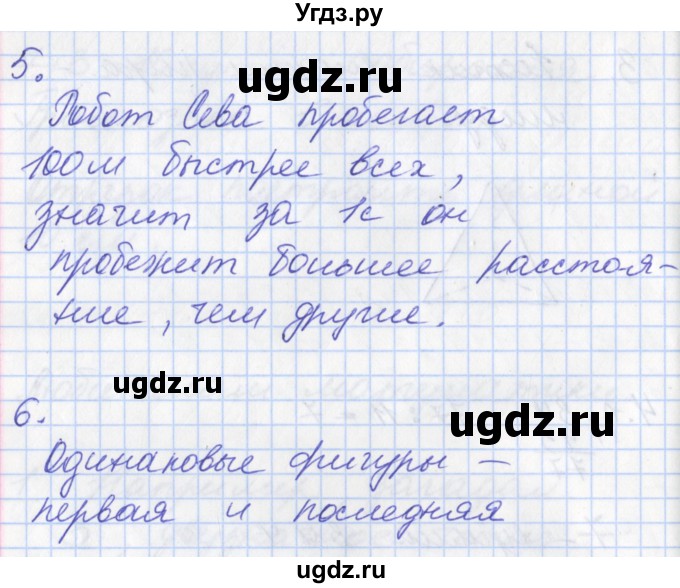 Угдз.ру
5.
ugdz.ru
Робот Сева пробегает
100м быстрее всех,
значит за 1с он
пробежит большее расстоя-
ние, чем другие.
ugdz.ru
ugdz.ru
6.
Одинаковые фигуры —
первая и последняя
ugdz.ru